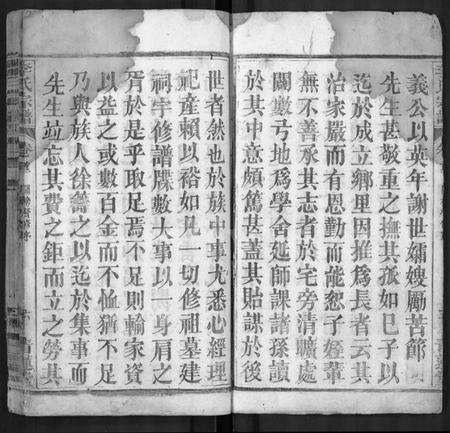 義公以英年謝世孀嫂勵苦節
先生甚敬重之撫其孤如己子以
迄於成立鄉里因推爲長者云其
治家嚴而有恩勤而能恕子姪輩
無不善承其志者於宅旁清曠處
闢數弓地爲學舍延師課諸孫讀
於其中意頗篤甚蓋其貽謀於後
世者然也於族中事尤悉心經理
祀產賴以裕如凡一切修祖墓建
祠宇修譜牒數大事以一身肩之
胥於是乎取足焉不足則輸家資
以益之或數百金而不恤猶不足
乃與族人徐籌之以迄於集事而
先生竝忘其費之鉅而立之勞其
氏宗譜